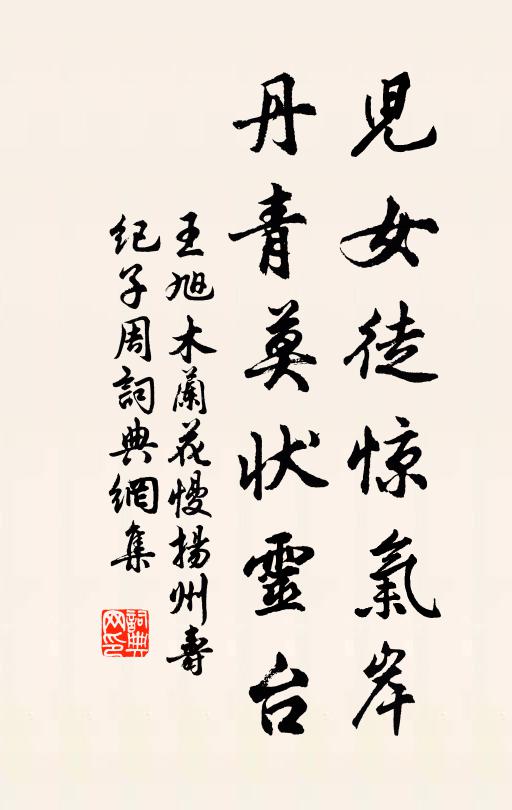 児女徒惊氣岸
丹青莫状靈台
王旭木蘭花慢揚州壽
紀子周詞典網集
詞典
网印